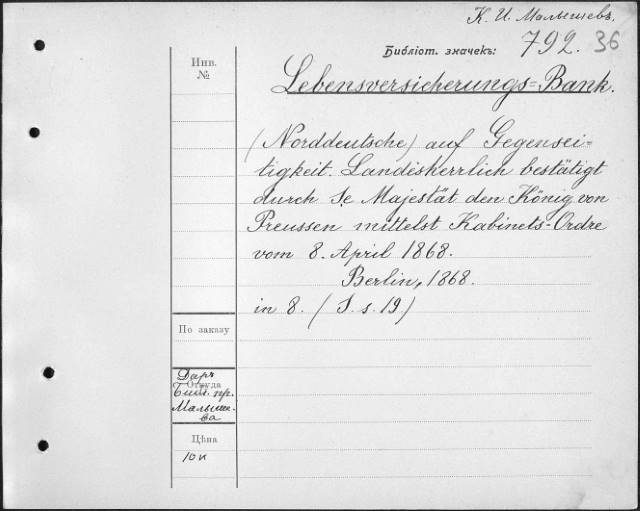 К. И. Малышевъ.
Библіот. значекъ: 792. 36
Инв.
№
Lebensversicherungs=Bank.
(Norddeutsche) auf Gegensei=
tigkeit. Landesherrlich bestätigt
durch Se Majestät den König von
Preussen mittelst Kabinets-Ordre
vom 8. April 1868.
Berlin, 1868.
in 8. (S. s. 19)
По заказу
Даръ
Откуда
Библ. пр.
Малыше-
ва
Цѣна
10 к